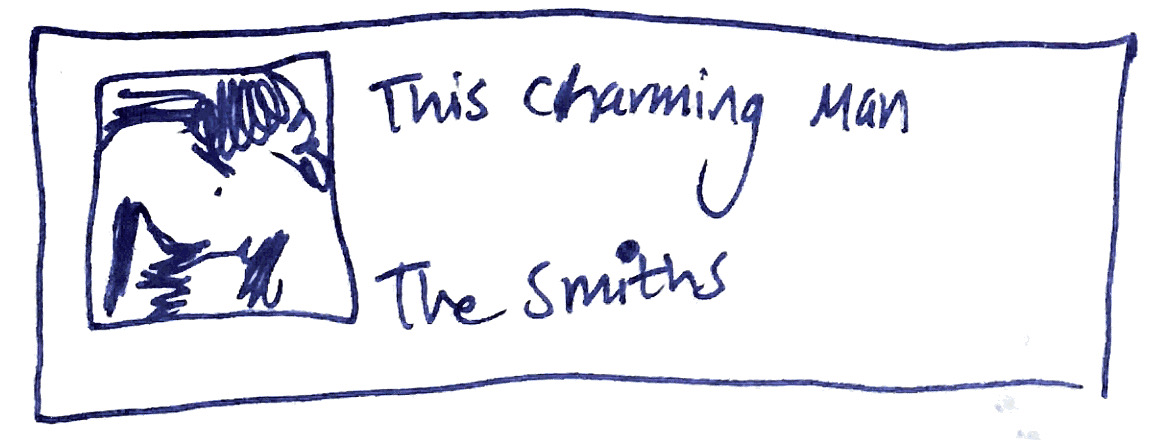 This Charming Man
The Smiths